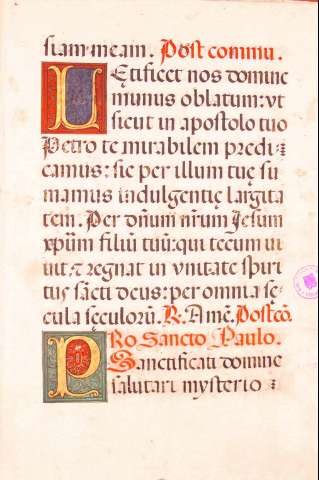 siam meam. Post commu.
LEtificet nos domine
munus oblatum: vt
sicut in apostolo tuo
Petro te mirabilem predi-
camus: sic per illum tuę su
mamus indulgentię largita
tem. Per dn̄um nr̄um Iesum
xp̄um filiū tuū: qui tecum vi
uit, ⁊ regnat in vnitate spiri
tus sācti deus: per omnia sę-
cula sęculorū. R. Amē. Postcō.
PRo Sancto Paulo.
Sanctificati domine
salutari mysterio :